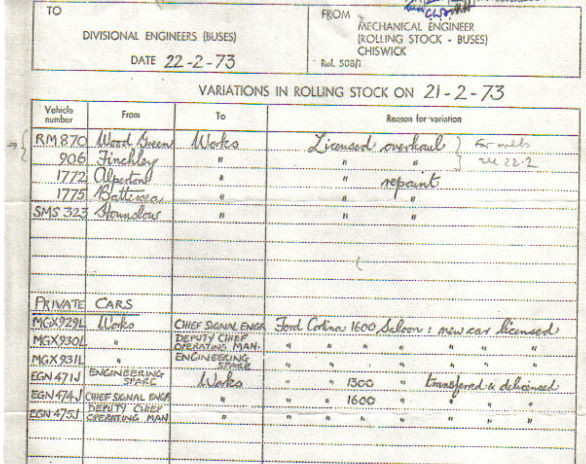 TO
FROM
MECHANICAL ENGINEER
DIVISIONAL ENGINEERS (BUSES)
(ROLLING STOCK - BUSES)
CHISWICK
DATE 22-2-73
Ref. 508/1
VARIATIONS IN ROLLING STOCK ON 21-2-73
Vehicle number From To Reason for variation
RM 870 Wood Green Works Licensed overhaul
906 Finchley " " " 22.2
1772 Alperton " " repaint
1775 Battersea " " "
SMS 323 Hounslow " " "
PRIVATE CARS
MGX929L Works CHIEF SIGNAL ENGR Ford Cortina 1600 Saloon : new car licensed
MGX930L " DEPUTY CHIEF OPERATING MAN. " " " " " " "
MGX931L " ENGINEERING SPARE " " " " " " "
EGN 471J ENGINEERING SPARE Works " " 1300 " transferred & delicensed
EGN 474J CHIEF SIGNAL ENGR " " " 1600 " " " "
EGN 475J DEPUTY CHIEF OPERATING MAN " " " " " " " "